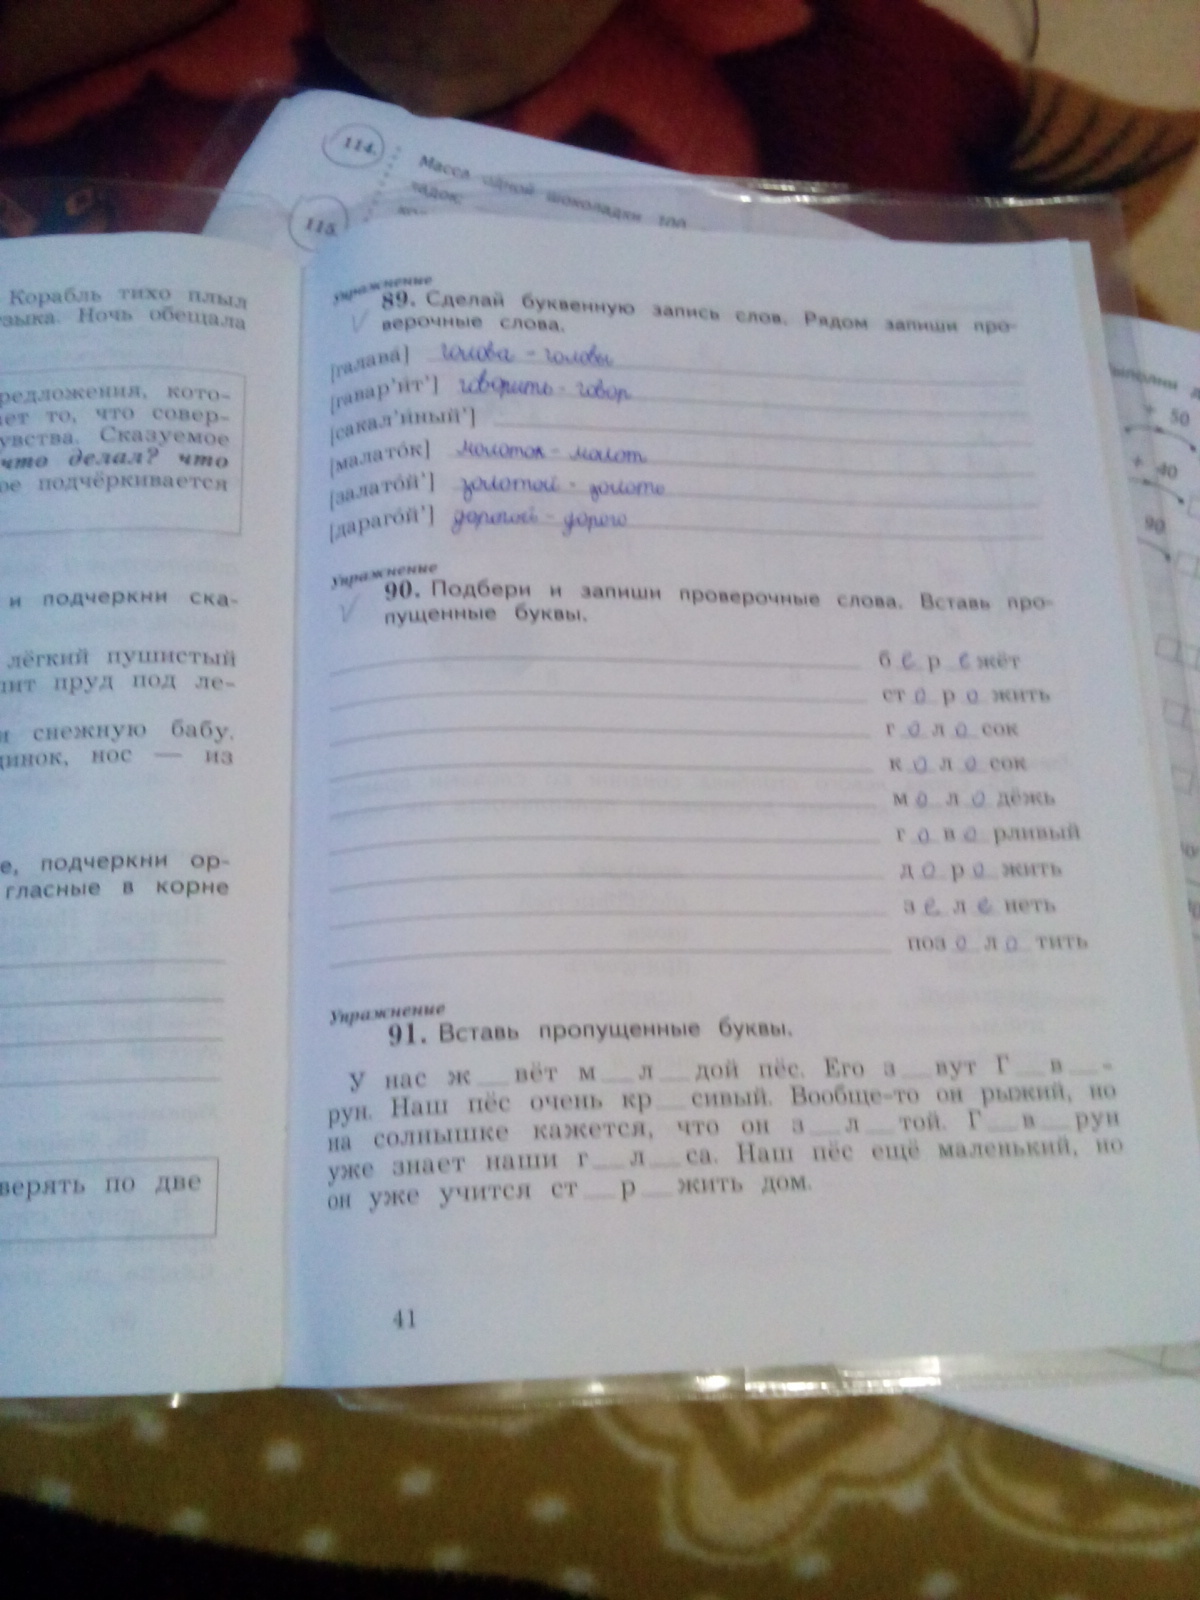 114. Масса одной шоколадки 100
115.
Корабль тихо плыл
Ночь обещала
редложения, кото-
ет то, что совер-
увства. Сказуемое
что делал? что
ое подчёркивается
и подчеркни ска-
лёгкий пушистый
пруд под ле-
и снежную бабу.
нос — из
е, подчеркни ор-
гласные в корне
верять по две
Упражнение
89. Сделай буквенную запись слов. Рядом запиши про-
верочные слова.
[галава́] голова - головы
[гавар'и́т'] говорить - говор
[сакал'и́ный']
[малато́к] молоток - молот
[залато́й'] золотой - золото
[дараго́й'] дорогой - дорого
Упражнение
90. Подбери и запиши проверочные слова. Вставь про-
пущенные буквы.
б е р е жёт
ст о р о жить
г о л о сок
к о л о сок
м о л о дёжь
г о в о рливый
д о р о жить
з е л е неть
поз о л о тить
Упражнение
91. Вставь пропущенные буквы.
У нас ж__вёт м__л__дой пёс. Его з__вут Г__в__-
рун. Наш пёс очень кр__сивый. Вообще-то он рыжий, но
на солнышке кажется, что он з__л__той. Г__в__рун
уже знает наши г__л__са. Наш пёс ещё маленький, но
он уже учится ст__р__жить дом.
41
+ 50
+ 40
90